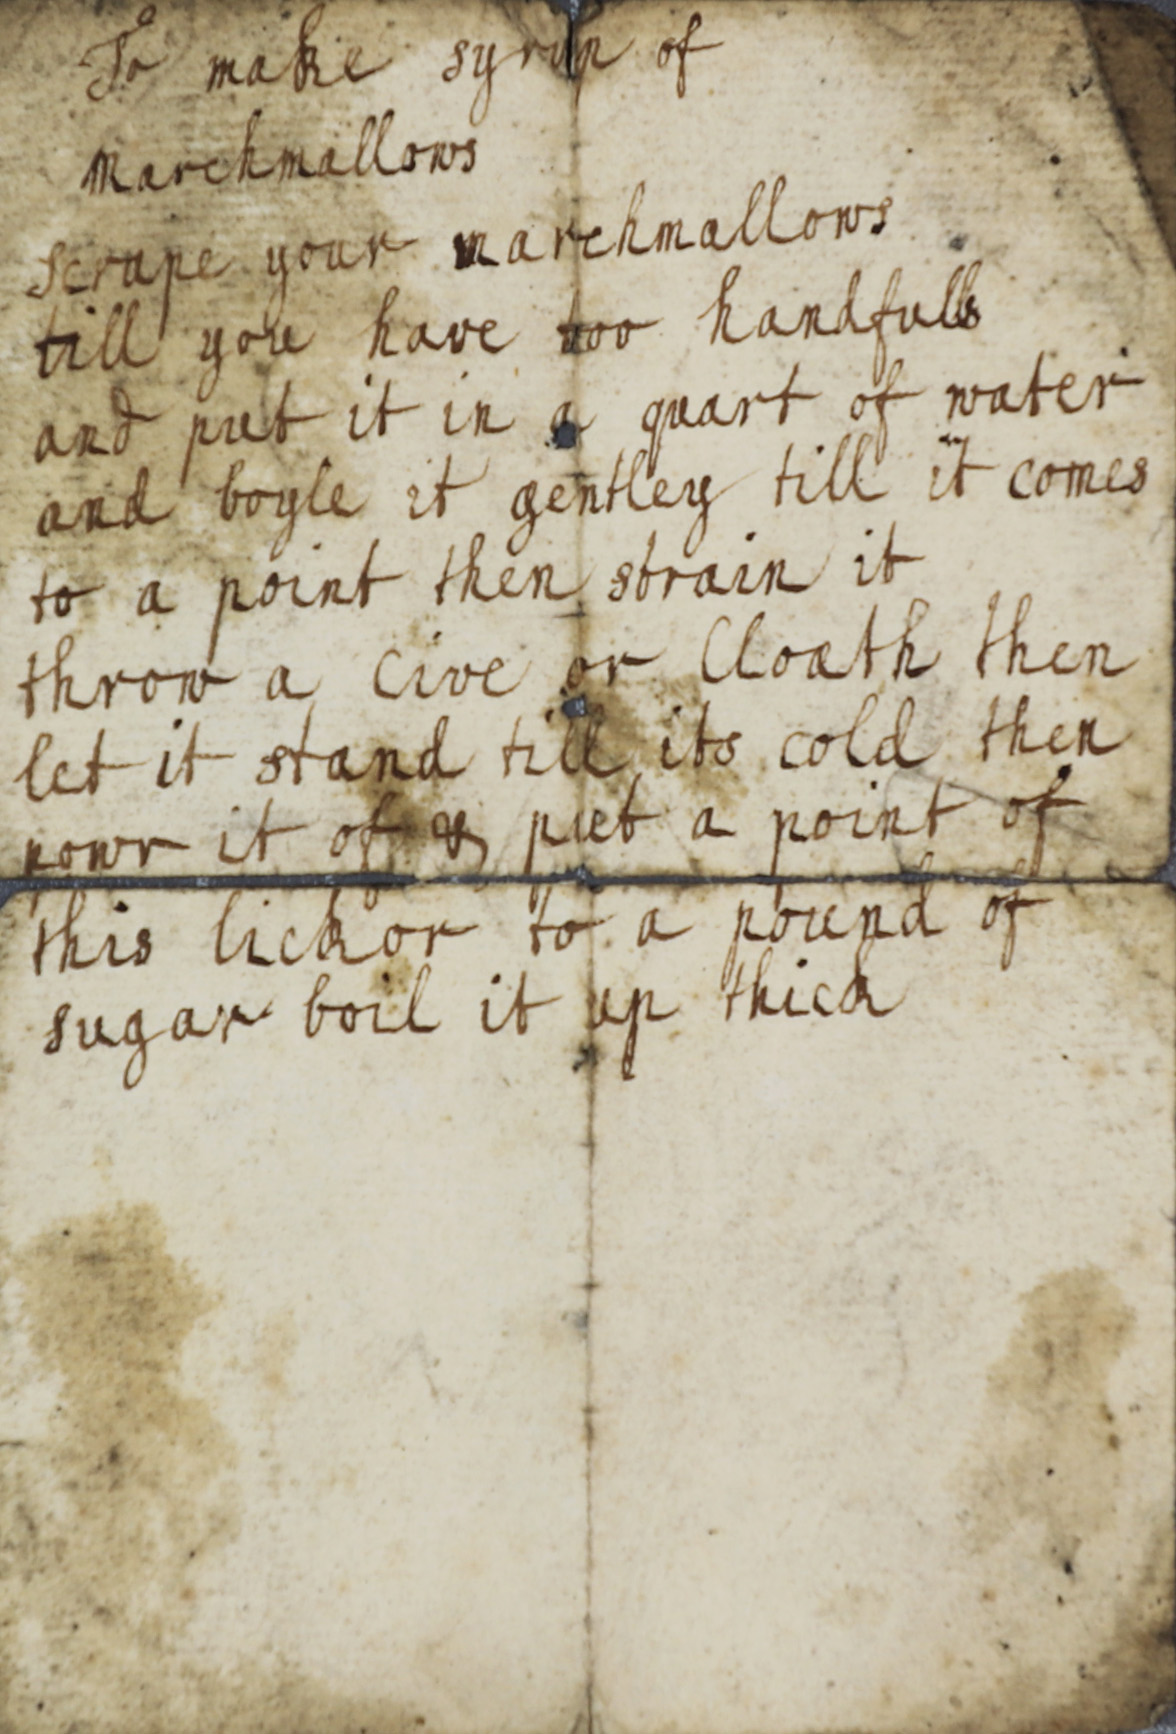 To make syrup of
marchmallows
scrape your marchmallows
till you have too handfulls
and put it in a quart of water
and boyle it gentley till it comes
to a point then strain it
throw a Cive or Cloath then
let it stand till its cold then
powr it of & put a point of
this lickor to a pound of
sugar boil it up thick